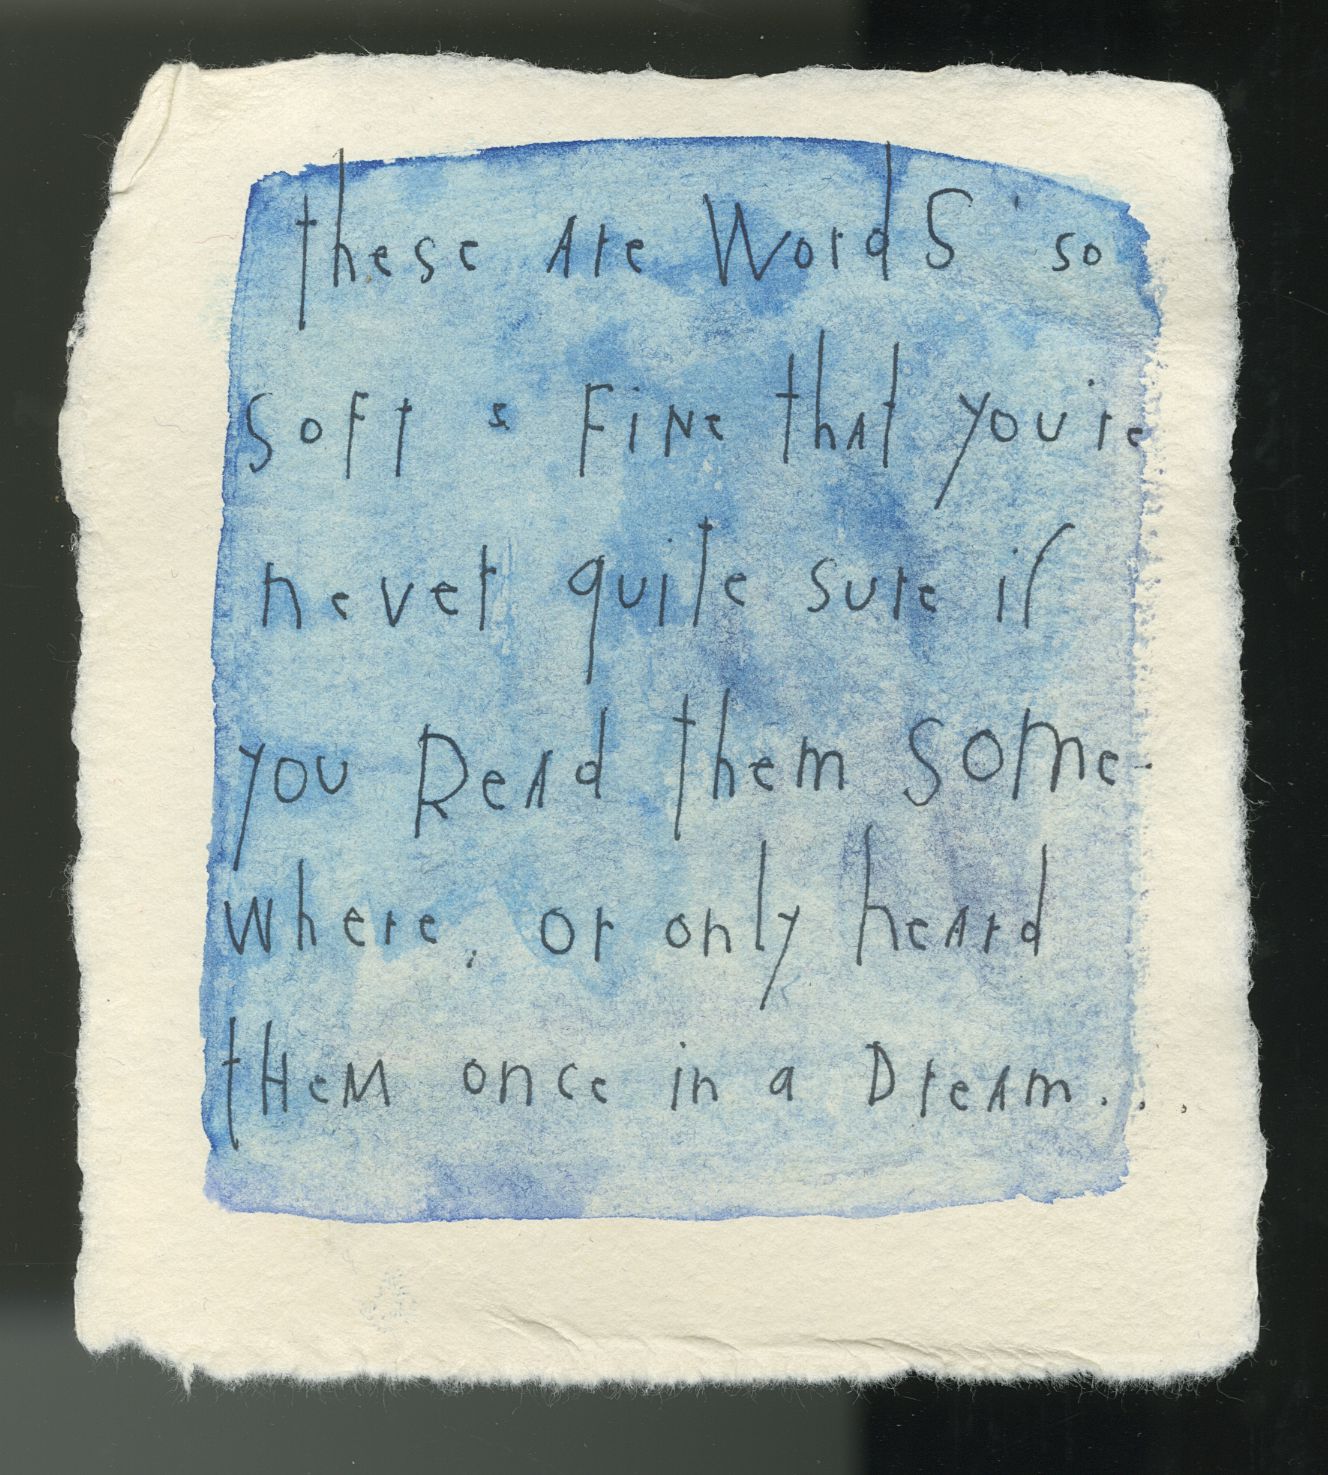 these Are WordS ' so
soFt & FiNe thAt you're
never quite sure if
you ReAd them some-
where, or only heArd
tHeM once in a DreAm...